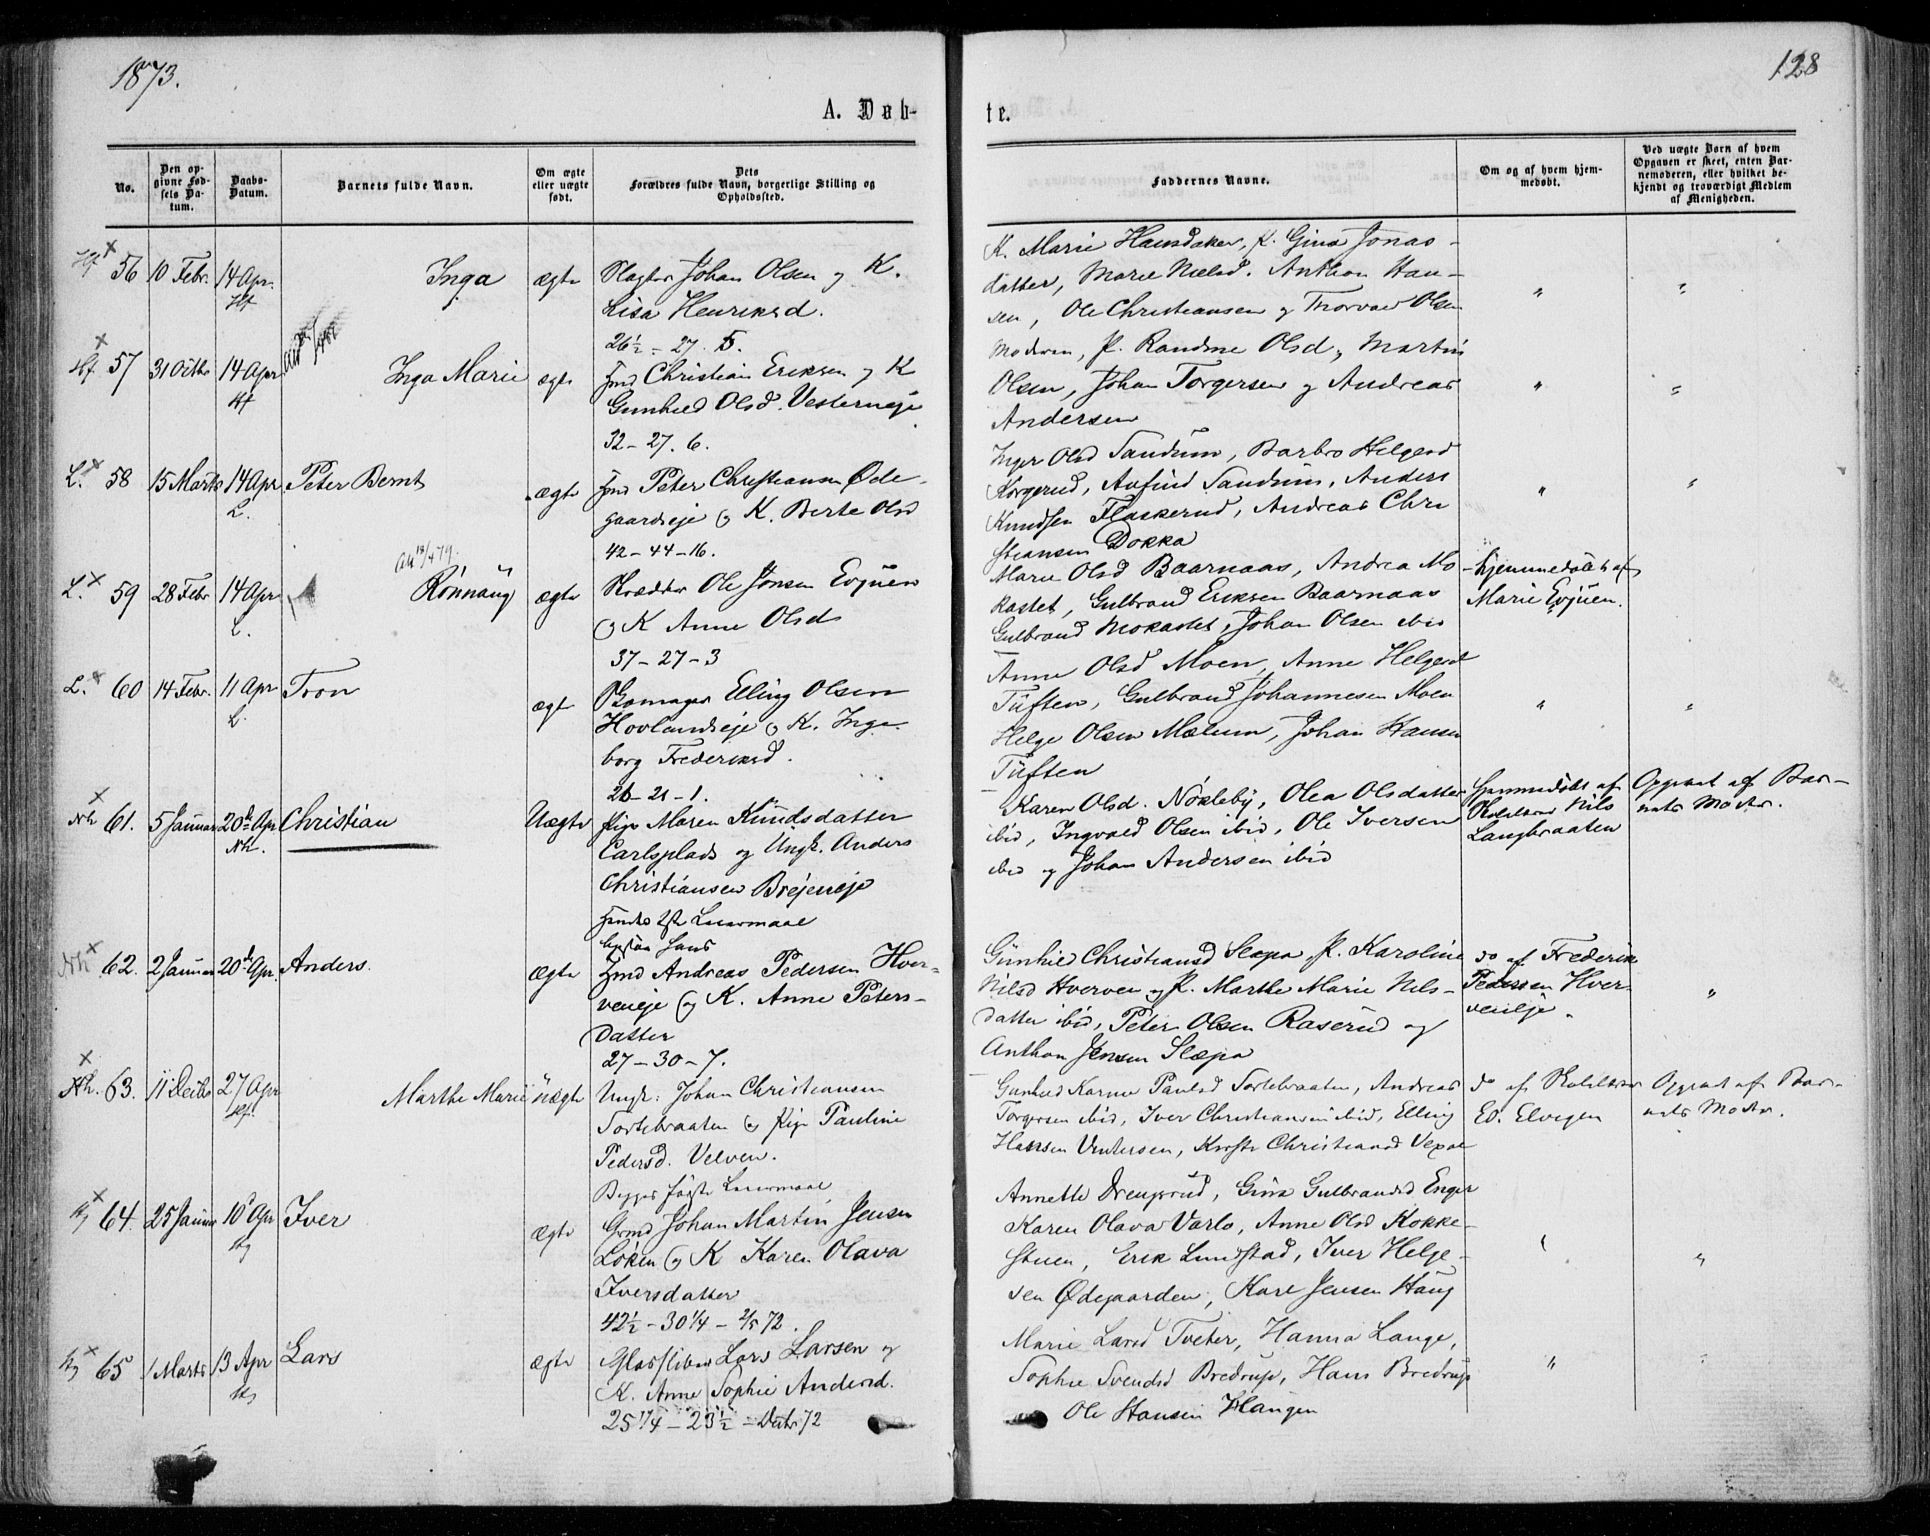 1873.
128
A. Døb-
te.
No.
Den op-
givne Fød-
sels Da-
tum.
Daabs-
Datum.
Barnets fulde Navn.
Om ægte
eller uægte
født.
Dets
Forældres fulde Navn, borgerlige Stilling og
Opholdssted.
Faddernes Navne.
Om og af hvem hjem-
medøbt.
Ved uægte Børn af hvem
Opgaven er skeet, enten Bar-
nemoderen, eller hvilket be-
kjendt og troværdigt Medlem
af Menigheden.
Hf × 56 10 Febr. 14 Apr. Hf Inga ægte
Slagter Johan Olsen og K.
Lisa Henriksd.
26½ - 27. 5.
K. Marie Hansdaker, P. Gina Jonas-
datter, Marie Nielsd. Anthon Han-
sen, Ole Christiansen og Thorvald Olsen
" "
Hf × 57 31 Octbr 14 Apr Hf Inga Marie ægte
Hmd Christian Eriksen og K
Gunhild Olsd. Vesterneje
32 - 27. 6.
Moderen, P. Randine Olsd, Martin
Olsen, Johan Torgersen og Andreas
Andersen
" "
L. × 58 15 Marts 14 Apr L. Peter Bernt ægte
Hmd Peter Christiansen Øde-
gaardseje og K. Berte Olsd
42 - 44 - 16.
Inger Olsd Sandum, Barbro Helgesd
Korgerud, Anfind Sandum, Anders
Knudsen Flaskerud, Andreas Chri
stiansen Dokka
" "
Att 18/4 79.
L. × 59 28 Febr 14 Apr L. Rønnaug ægte
Skrædder Ole Jonsen Evjuen
og K Anne Olsd
37 - 27 - 3
Marie Olsd Baarnaas, Andrea Mo-
kastet, Gulbrand Eriksen Baarnaas
Gulbrand Mokastet, Johan Olsen ibid
hjemmedøbt af
Marie Evjuen.
L. × 60 14 Febr. 11 Apr L. Tron ægt
Skomager Elling Olsen
Hovlandseje og K. Inge
borg Frederiksd.
26 - 21 - 1.
Anne Olsd Moen, Anne Helgesd
Tuften, Gulbrand Johannesen Moen
Helge Olsen Mælum, Johan Hansen
Tuften
" "
Nh × 61. 5 Januar 20de Apr Nh. Christian Uægte
Pige Maren Knudsdatter
Carlsplads og Ungk. Anders
Christiansen Brejeneje
Hendes 2det Leiermaal
hans
Karen Olsd. Nøkleby, Olea Olsdatter
ibid, Ingvald Olsen ibid, Ole Iversen
ibid og Johan Andersen ibid
Hjemmedøbt af
Skolelærer Nils
Langbraaten
Opgivet af Bar-
nets Moder.
Nh × 62. 2 Januar 20de Apr. Anders. ægte
Hmd Andreas Pedersen Hver-
veneje og K. Anne Peters-
datter
27 - 30 - 7.
Gunhild Christiansd Slæpa, P. Karoline
Nilsd Hverven og P. Marthe Marie Nils-
datter ibid, Peter Olsen Raserud og
Anthon Jensen Slæpa
do af Frederik
Pedersen Hver-
veneje.
"
Nh. × 63. 11 Decbr 27 Apr Hf. Marthe Marie uægte
Ungk: Johan Christiansen
Sortebraaten og Pige Pauline
Pedersd. Velven.
Begges første Leiermaal
Gunhild Karine Paulsd Sortebraaten, Andreas
Torgersen ibid, Iver Christiansen ibid, Elling
Hansen Ventersen, Kirsti Christiansd Vexal
do af Skolelærer
Ed. Elvigen
Opgivet af Bar-
nets Moder.
× 64. 25 Januar 10 Apr Iver ægte
Grmd Johan Martin Jensen
Løken og K Karen Olava
Iversdatter
42½ - 30¼ - 2/5 72.
Annette Drengsrud, Gina Gulbrandsd Enger
Karen Olava Varlo, Anne Olsd Kokke-
stuen, Erik Lundstad, Iver Helge-
sen Ødegaarden, Karl Jensen Haug
" "
× 65 1 Marts 13 Apr Lars ægte
Glassliber Lars Larsen og
K. Anne Sophie Andersd.
25¼ - 23½ - Decbr 72
Marie Larsd Tveter, Hanna Lange,
Sophie Svendsd Bredrup, Hans Bredrup
Ole Hansen Haugen
" "